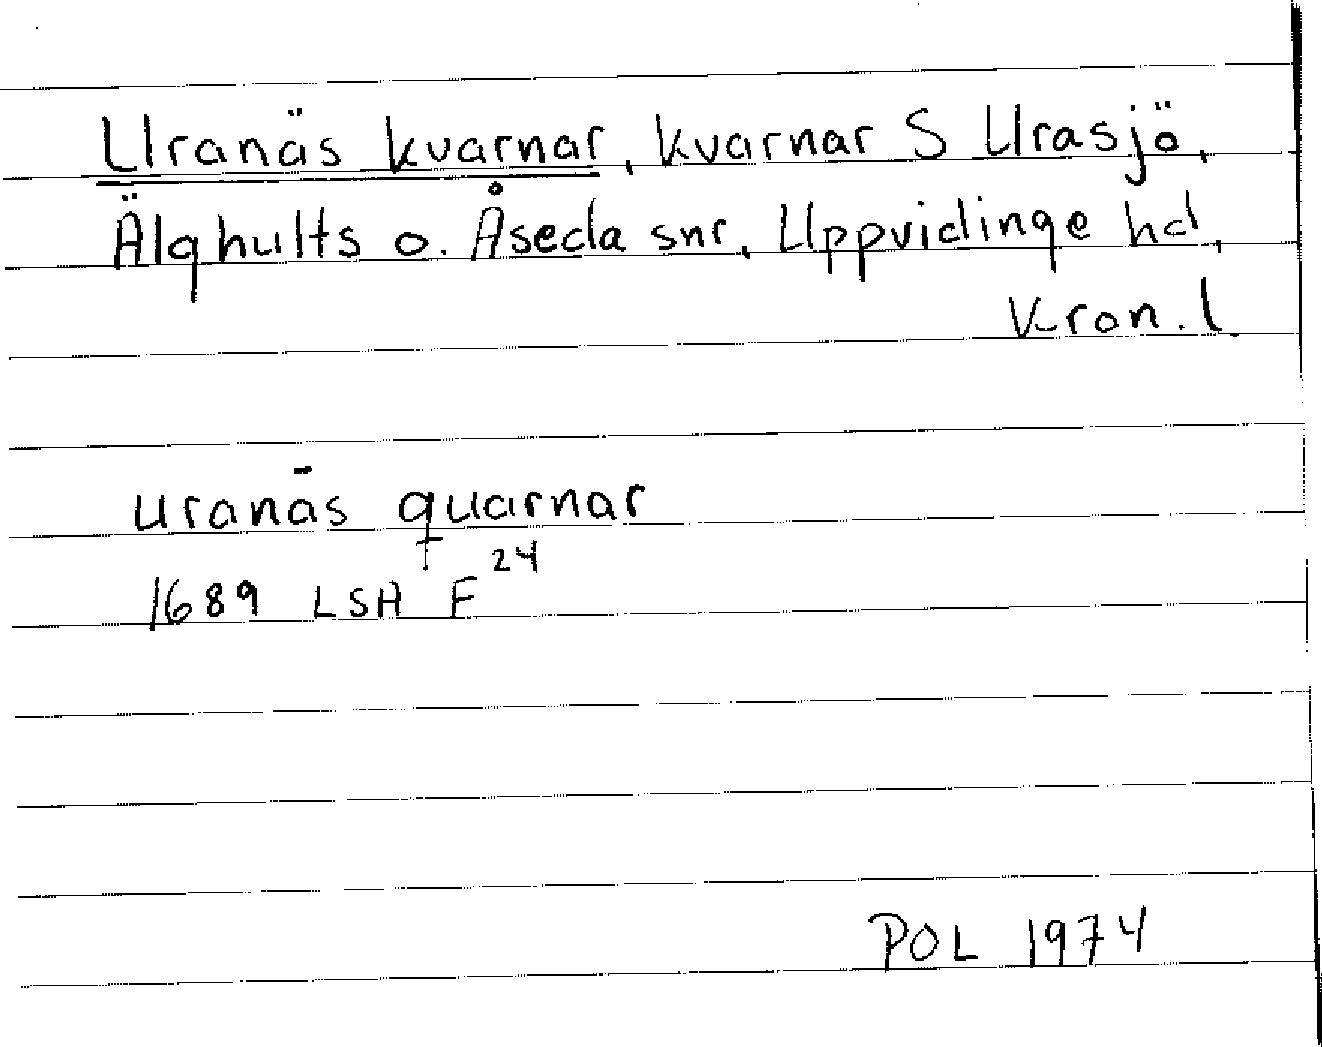 Uranäs kvarnar, kvarnar S Urasjö,
Älghults o. Åseda snr, Uppvidinge hd,
Kron. l
uranäs quarnar
1689 LSH F 24
POL 1974